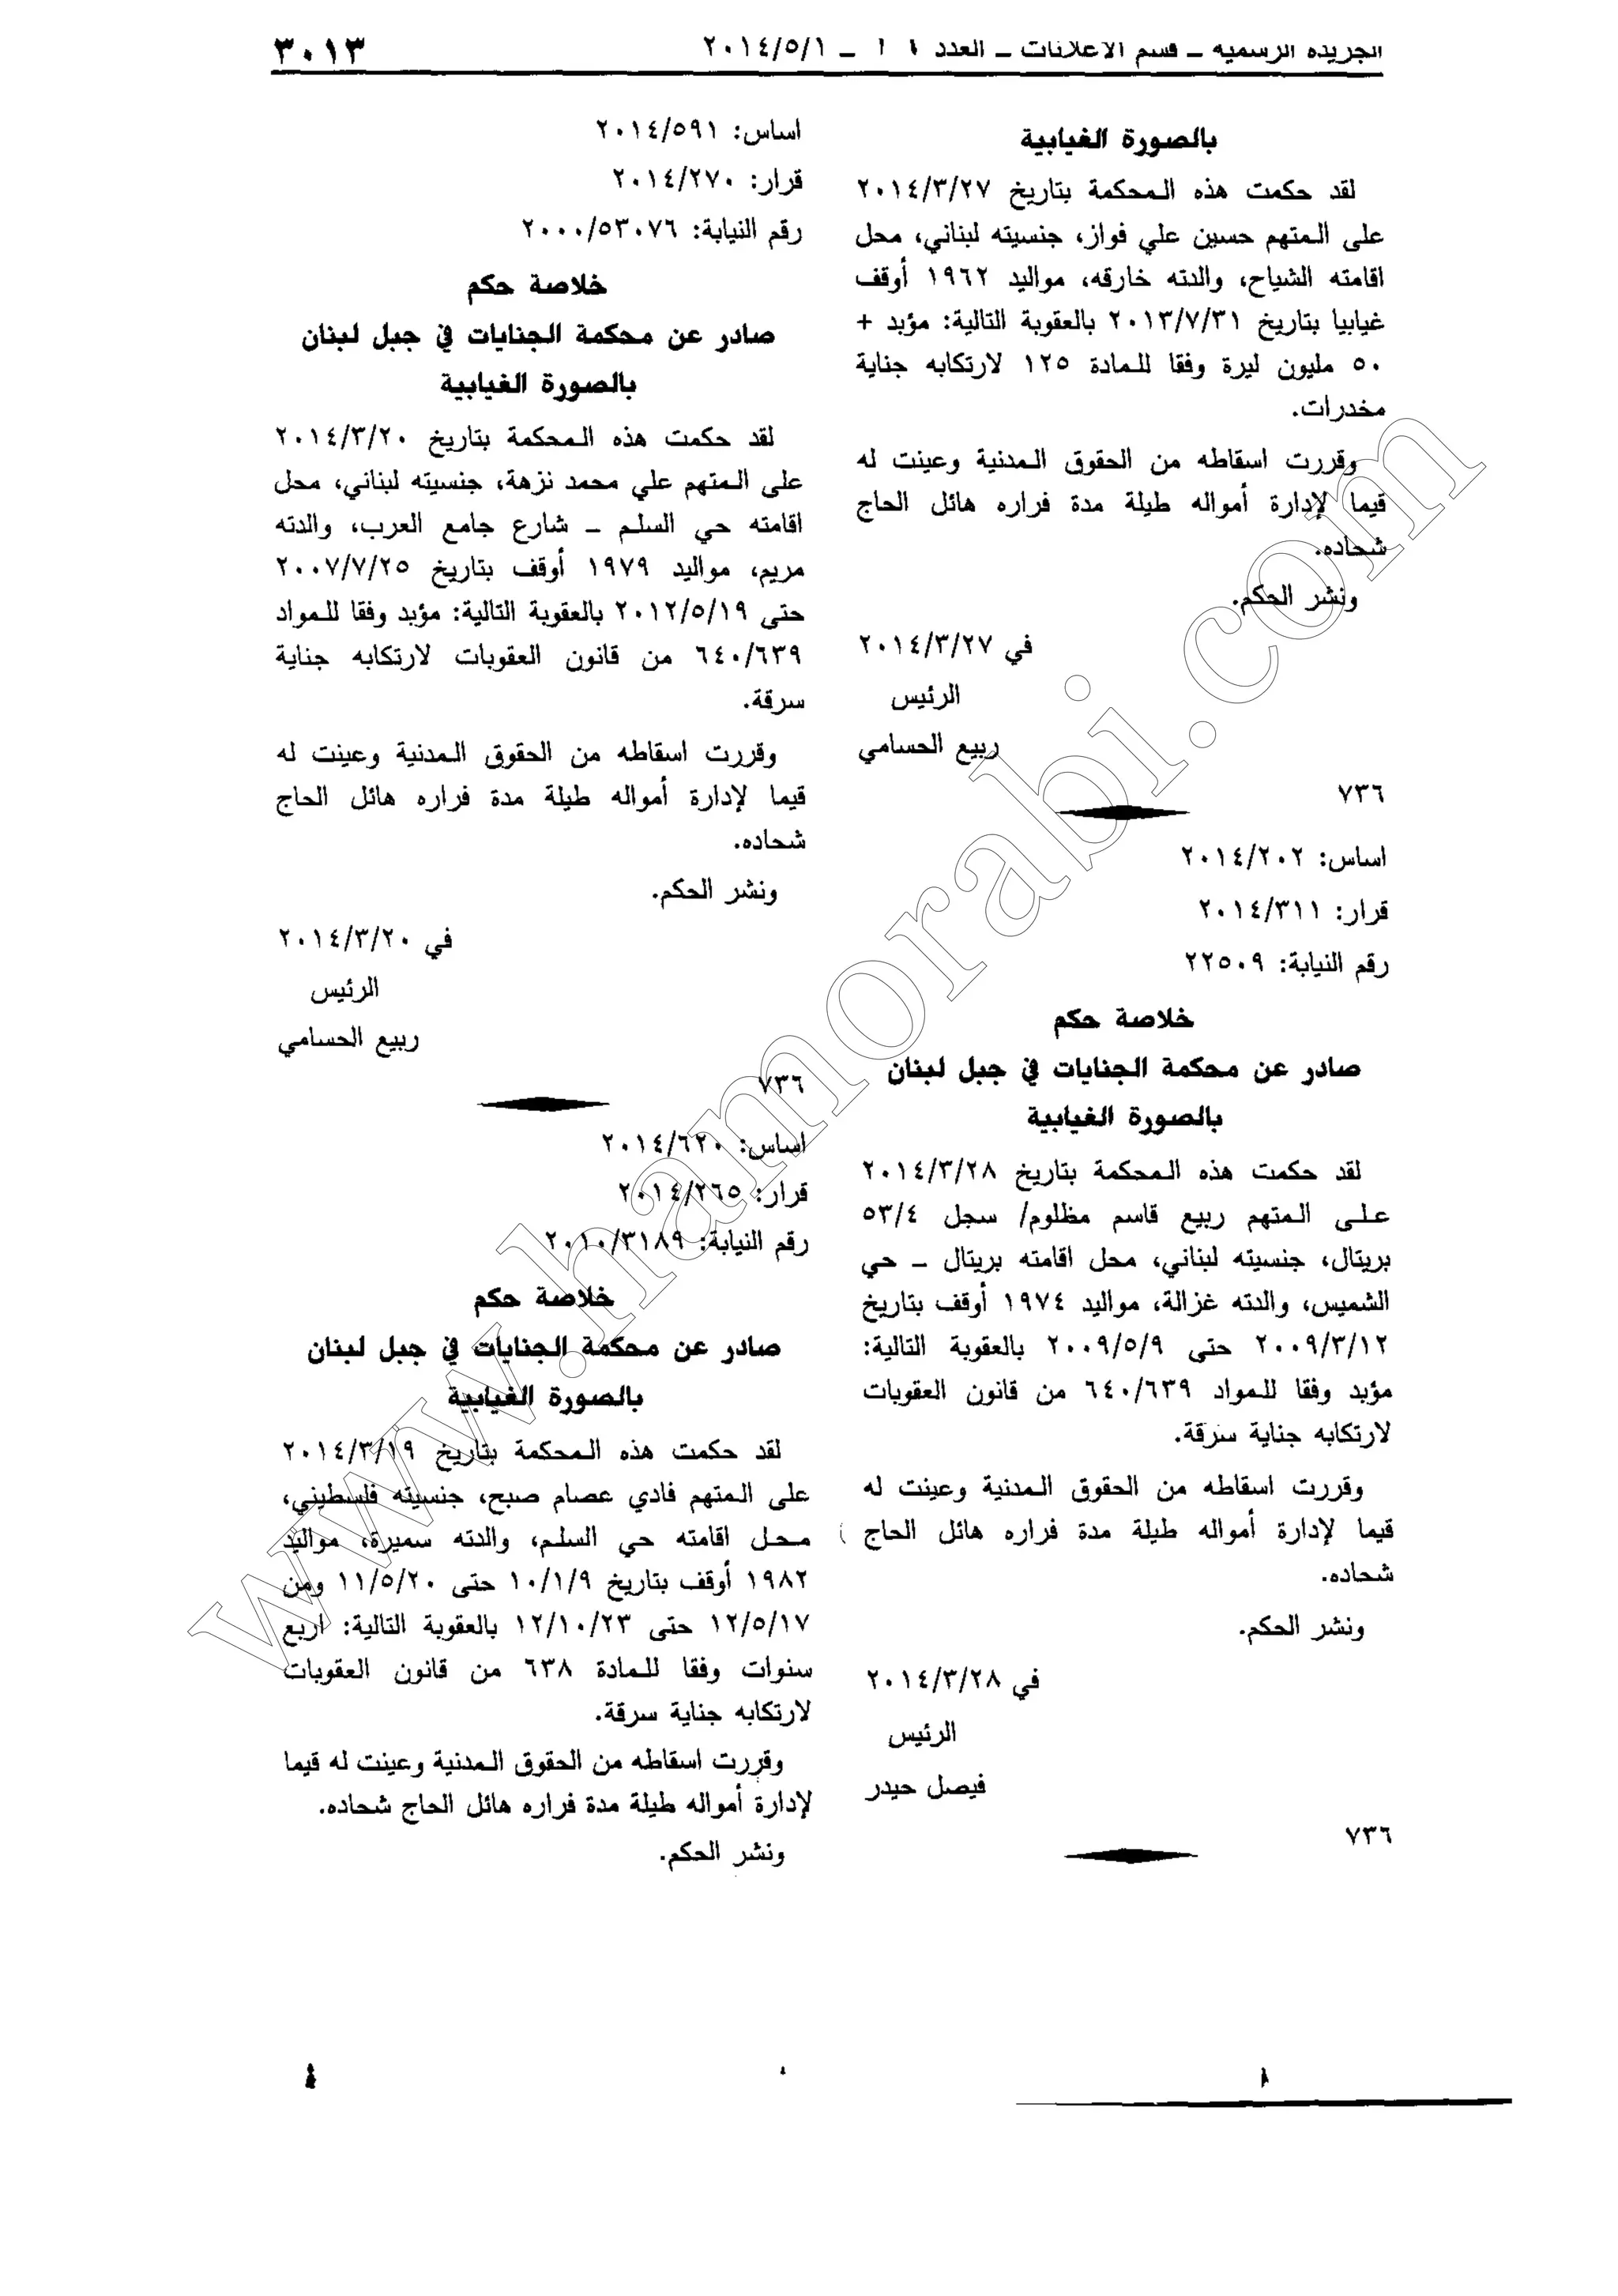 الجريدة الرسمية ــ قسم الاعلانات ــ العدد ــ ٢٠١٤/٥/١
٣٠١٣
بالصورة الغيابية
لقد حكمت هذه المحكمة بتاريخ ٢٠١٤/٣/٢٧
على المتهم حسين علي فواز، جنسيته لبناني، محل
اقامته الشياح، والدته خارقه، مواليد ١٩٦٢ أوقف
غيابيا بتاريخ ٢٠١٣/٧/٣١ بالعقوبة التالية: مؤبد +
٥٠ مليون ليرة وفقا للمادة ١٢٥ لارتكابه جناية
مخدرات.
وقررت اسقاطه من الحقوق المدنية وعينت له
قيما لإدارة أمواله طيلة مدة فراره هائل الحاج
شحاده.
ونشر الحكم.
في ٢٠١٤/٣/٢٧
الرئيس
ربيع الحسامي
٧٣٦
اساس: ٢٠١٤/٢٠٢
قرار: ٢٠١٤/٣١١
رقم النيابة: ٢٢٥٠٩
خلاصة حكم
صادر عن محكمة الجنايات في جبل لبنان
بالصورة الغيابية
لقد حكمت هذه المحكمة بتاريخ ٢٠١٤/٣/٢٨
على المتهم ربيع قاسم مظلوم/ سجل ٥٣/٤
بريتال، جنسيته لبناني، محل اقامته بريتال ــ حي
الشميس، والدته غزالة، مواليد ١٩٧٤ أوقف بتاريخ
٢٠٠٩/٣/١٢ حتى ٢٠٠٩/٥/٩ بالعقوبة التالية:
مؤبد وفقا للمواد ٦٤٠/٦٣٩ من قانون العقوبات
لارتكابه جناية سرقة.
وقررت اسقاطه من الحقوق المدنية وعينت له
قيما لإدارة أمواله طيلة مدة فراره هائل الحاج
شحاده.
ونشر الحكم.
في ٢٠١٤/٣/٢٨
الرئيس
فيصل حيدر
٧٣٦
اساس: ٢٠١٤/٥٩١
قرار: ٢٠١٤/٢٧٠
رقم النيابة: ٢٠٠٠/٥٣٠٧٦
خلاصة حكم
صادر عن محكمة الجنايات في جبل لبنان
بالصورة الغيابية
لقد حكمت هذه المحكمة بتاريخ ٢٠١٤/٣/٢٠
على المتهم علي محمد نزهة، جنسيته لبناني، محل
اقامته حي السلم ــ شارع جامع العرب، والدته
مريم، مواليد ١٩٧٩ أوقف بتاريخ ٢٠٠٧/٧/٢٥
حتى ٢٠١٢/٥/١٩ بالعقوبة التالية: مؤبد وفقا للمواد
٦٤٠/٦٣٩ من قانون العقوبات لارتكابه جناية
سرقة.
وقررت اسقاطه من الحقوق المدنية وعينت له
قيما لإدارة أمواله طيلة مدة فراره هائل الحاج
شحاده.
ونشر الحكم.
في ٢٠١٤/٣/٢٠
الرئيس
ربيع الحسامي
٧٣٦
اساس: ٢٠١٤/٦٢٠
قرار: ٢٠١٤/٢٦٥
رقم النيابة: ٢٠١٠/٣١٨٩
خلاصة حكم
صادر عن محكمة الجنايات في جبل لبنان
بالصورة الغيابية
لقد حكمت هذه المحكمة بتاريخ ٢٠١٤/٣/١٩
على المتهم فادي عصام صبح، جنسيته فلسطيني،
محل اقامته حي السلم، والدته سميرة، مواليد
١٩٨٢ أوقف بتاريخ ١٠/١/٩ حتى ١١/٥/٢٠ ومن
١٢/٥/١٧ حتى ١٢/١٠/٢٣ بالعقوبة التالية: اربع
سنوات وفقا للمادة ٦٣٨ من قانون العقوبات
لارتكابه جناية سرقة.
وقررت اسقاطه من الحقوق المدنية وعينت له قيما
لإدارة أمواله طيلة مدة فراره هائل الحاج شحاده.
ونشر الحكم.
www.hamorabi.com